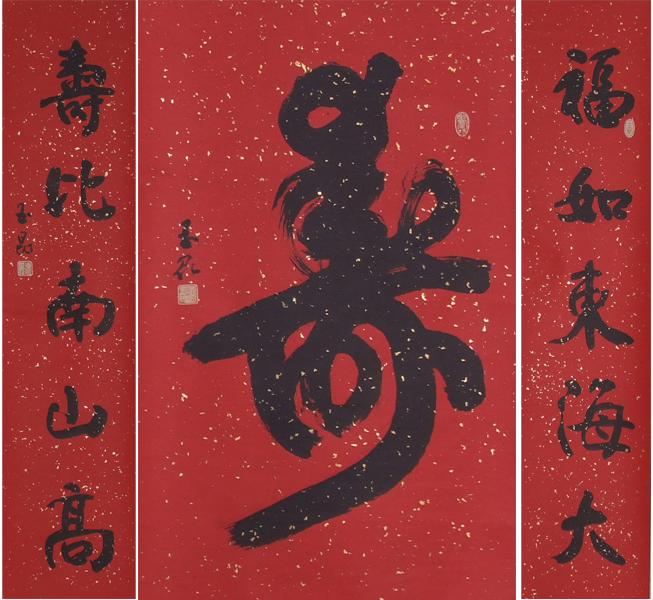 福如東海大
壽
壽比南山高